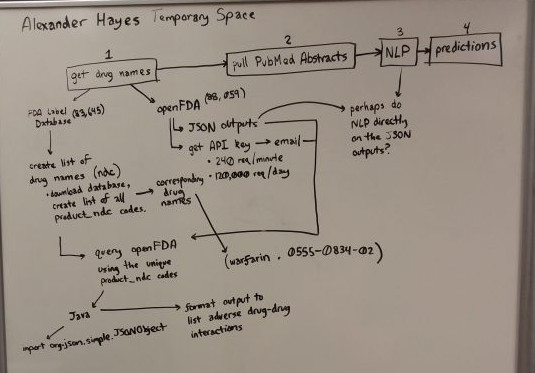 Alexander Hayes Temporary Space
1
get drug names
2
pull PubMed Abstracts
3
NLP
4
predictions
FDA Label (83,643)
Database
openFDA (88,059)
JSON outputs
get API key → email
• 240 req/minute
• 120,000 req/day
perhaps do
NLP directly
on the JSON
outputs?
create list of
drug names (ndc)
• download database,
create list of all
product_ndc codes.
corresponding
drug
names
query openFDA
using the unique
product_ndc codes
(warfarin . 0555-0834-02)
Java
import org.json.simple.JSONObject
format output to
list adverse drug-drug
interactions